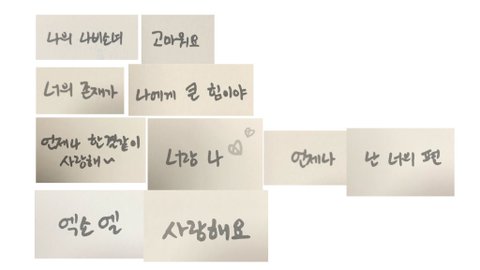 나의 나비소녀
고마워요
너의 존재가
나에게 큰 힘이야
언제나 한결같이
사랑해~
너랑 나
언제나
난 너의 편
엑소엘
사랑해요